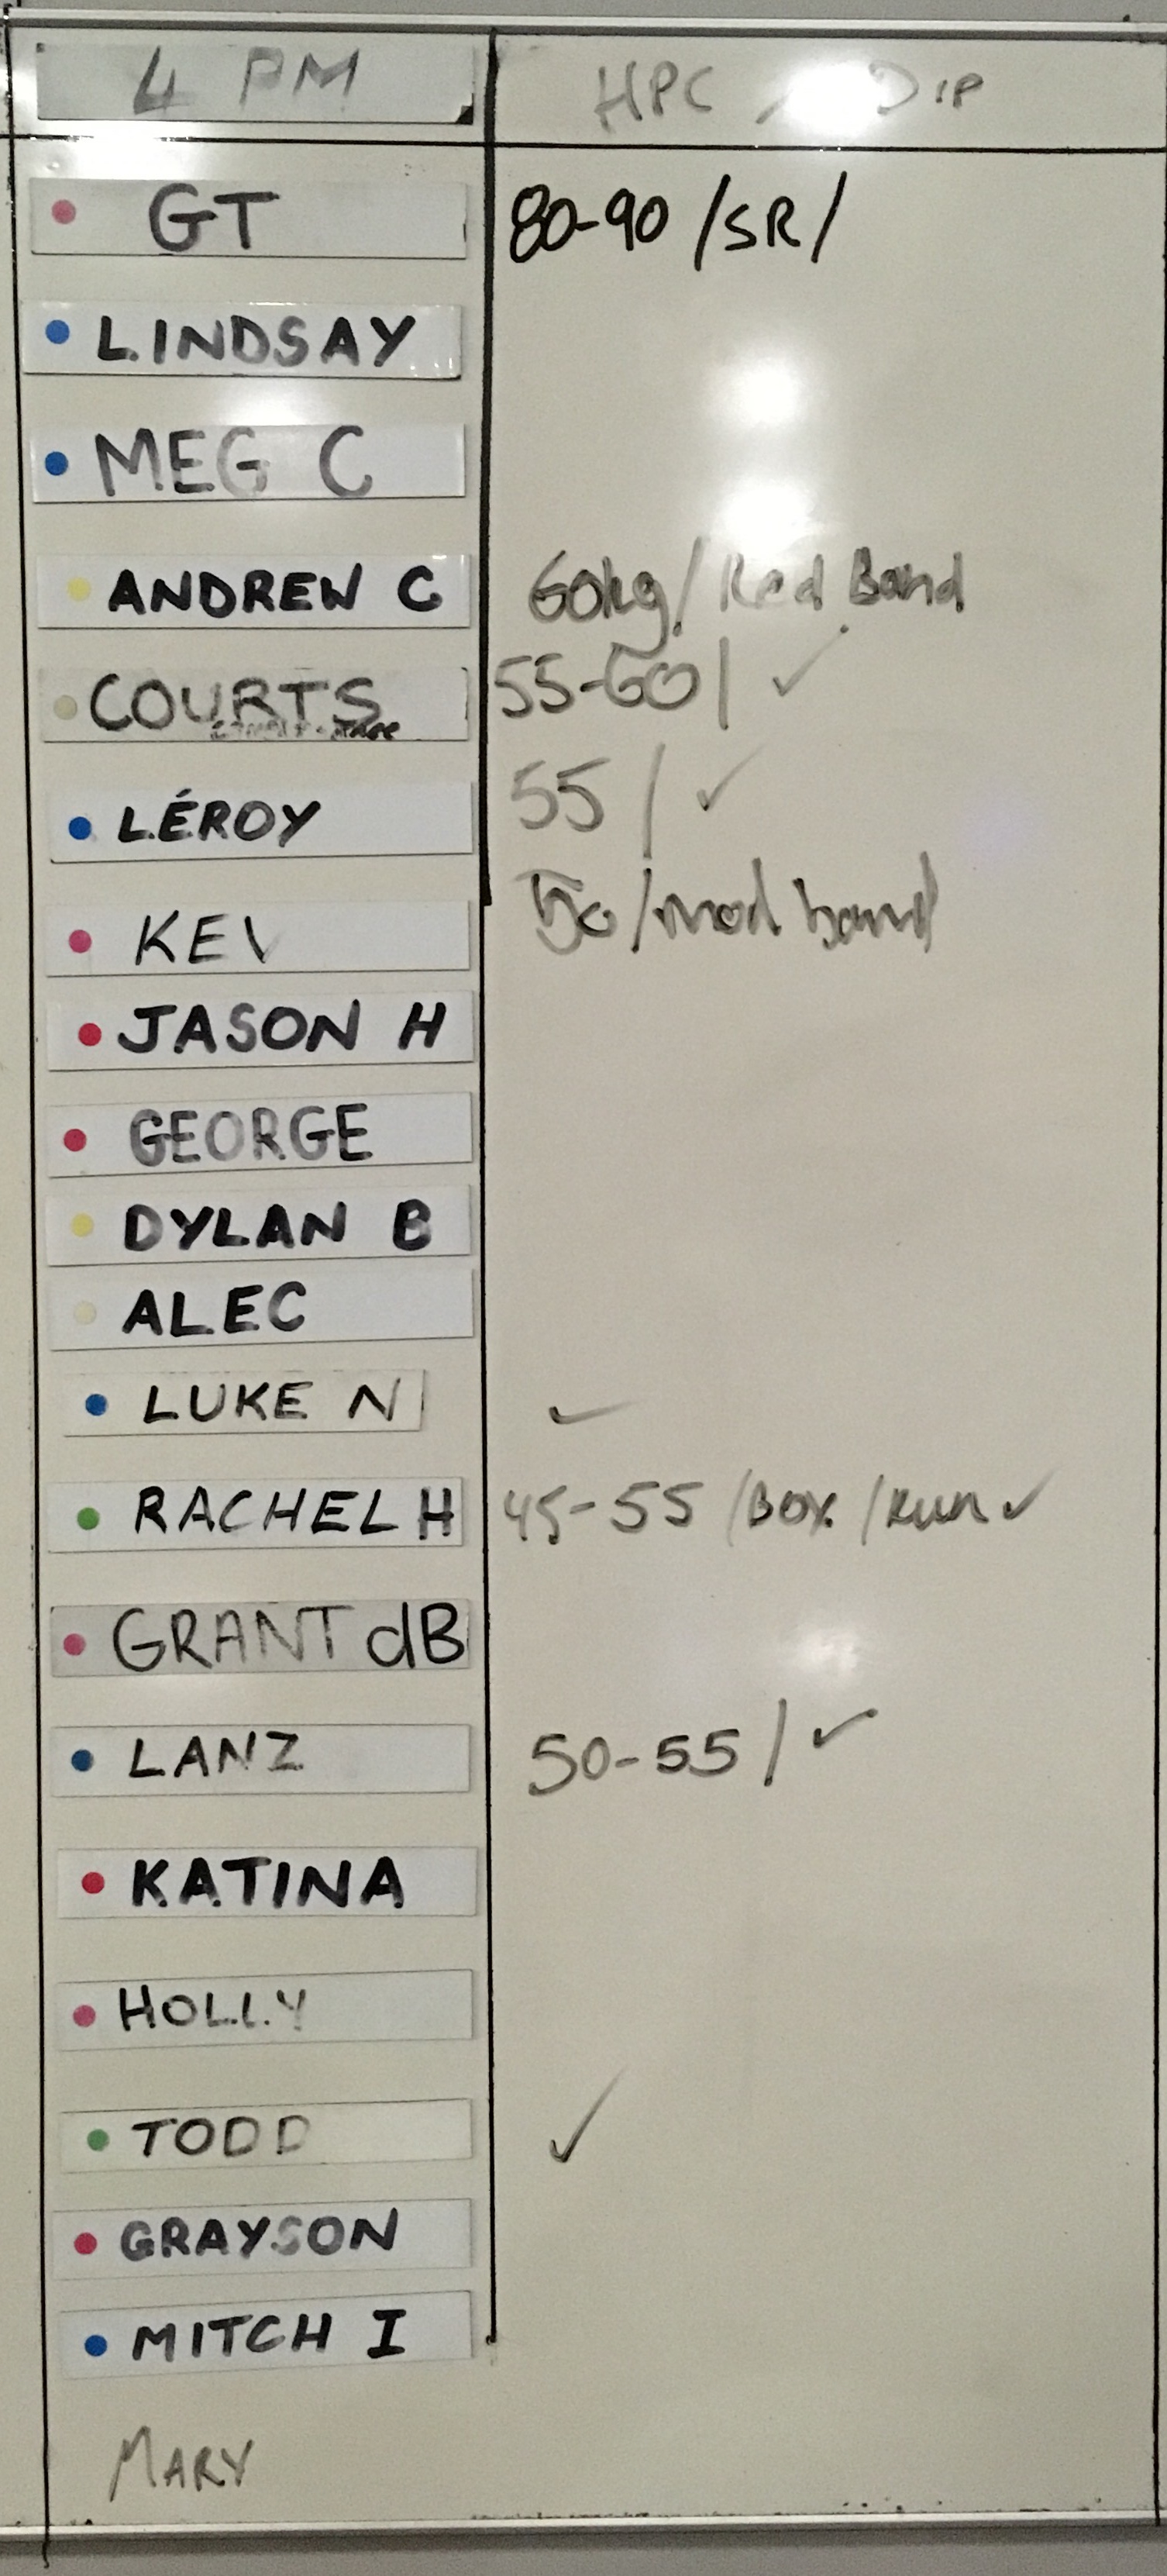 4 PM HPC / DIP
GT 80-90 /SR/
LINDSAY
MEG C
ANDREW C 60kg/Red Band
COURTS 55-60/ ✓
LÉROY 55 / ✓
KEV 50/mod band
JASON H
GEORGE
DYLAN B
ALEC
LUKE N ✓
RACHEL H 45-55 /Box /Run ✓
GRANT dB
LANZ 50-55 / ✓
KATINA
HOLLY
TODD ✓
GRAYSON
MITCH I
MARY